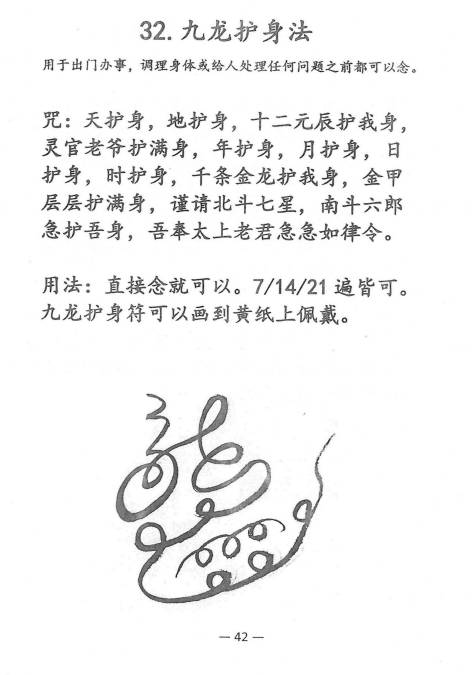 32. 九龙护身法
用于出门办事，调理身体或给人处理任何问题之前都可以念。
咒：天护身，地护身，十二元辰护我身，
灵官老爷护满身，年护身，月护身，日
护身，时护身，千条金龙护我身，金甲
层层护满身，谨请北斗七星，南斗六郎
急护吾身，吾奉太上老君急急如律令。
用法：直接念就可以。7/14/21 遍皆可。
九龙护身符可以画到黄纸上佩戴。
— 42 —